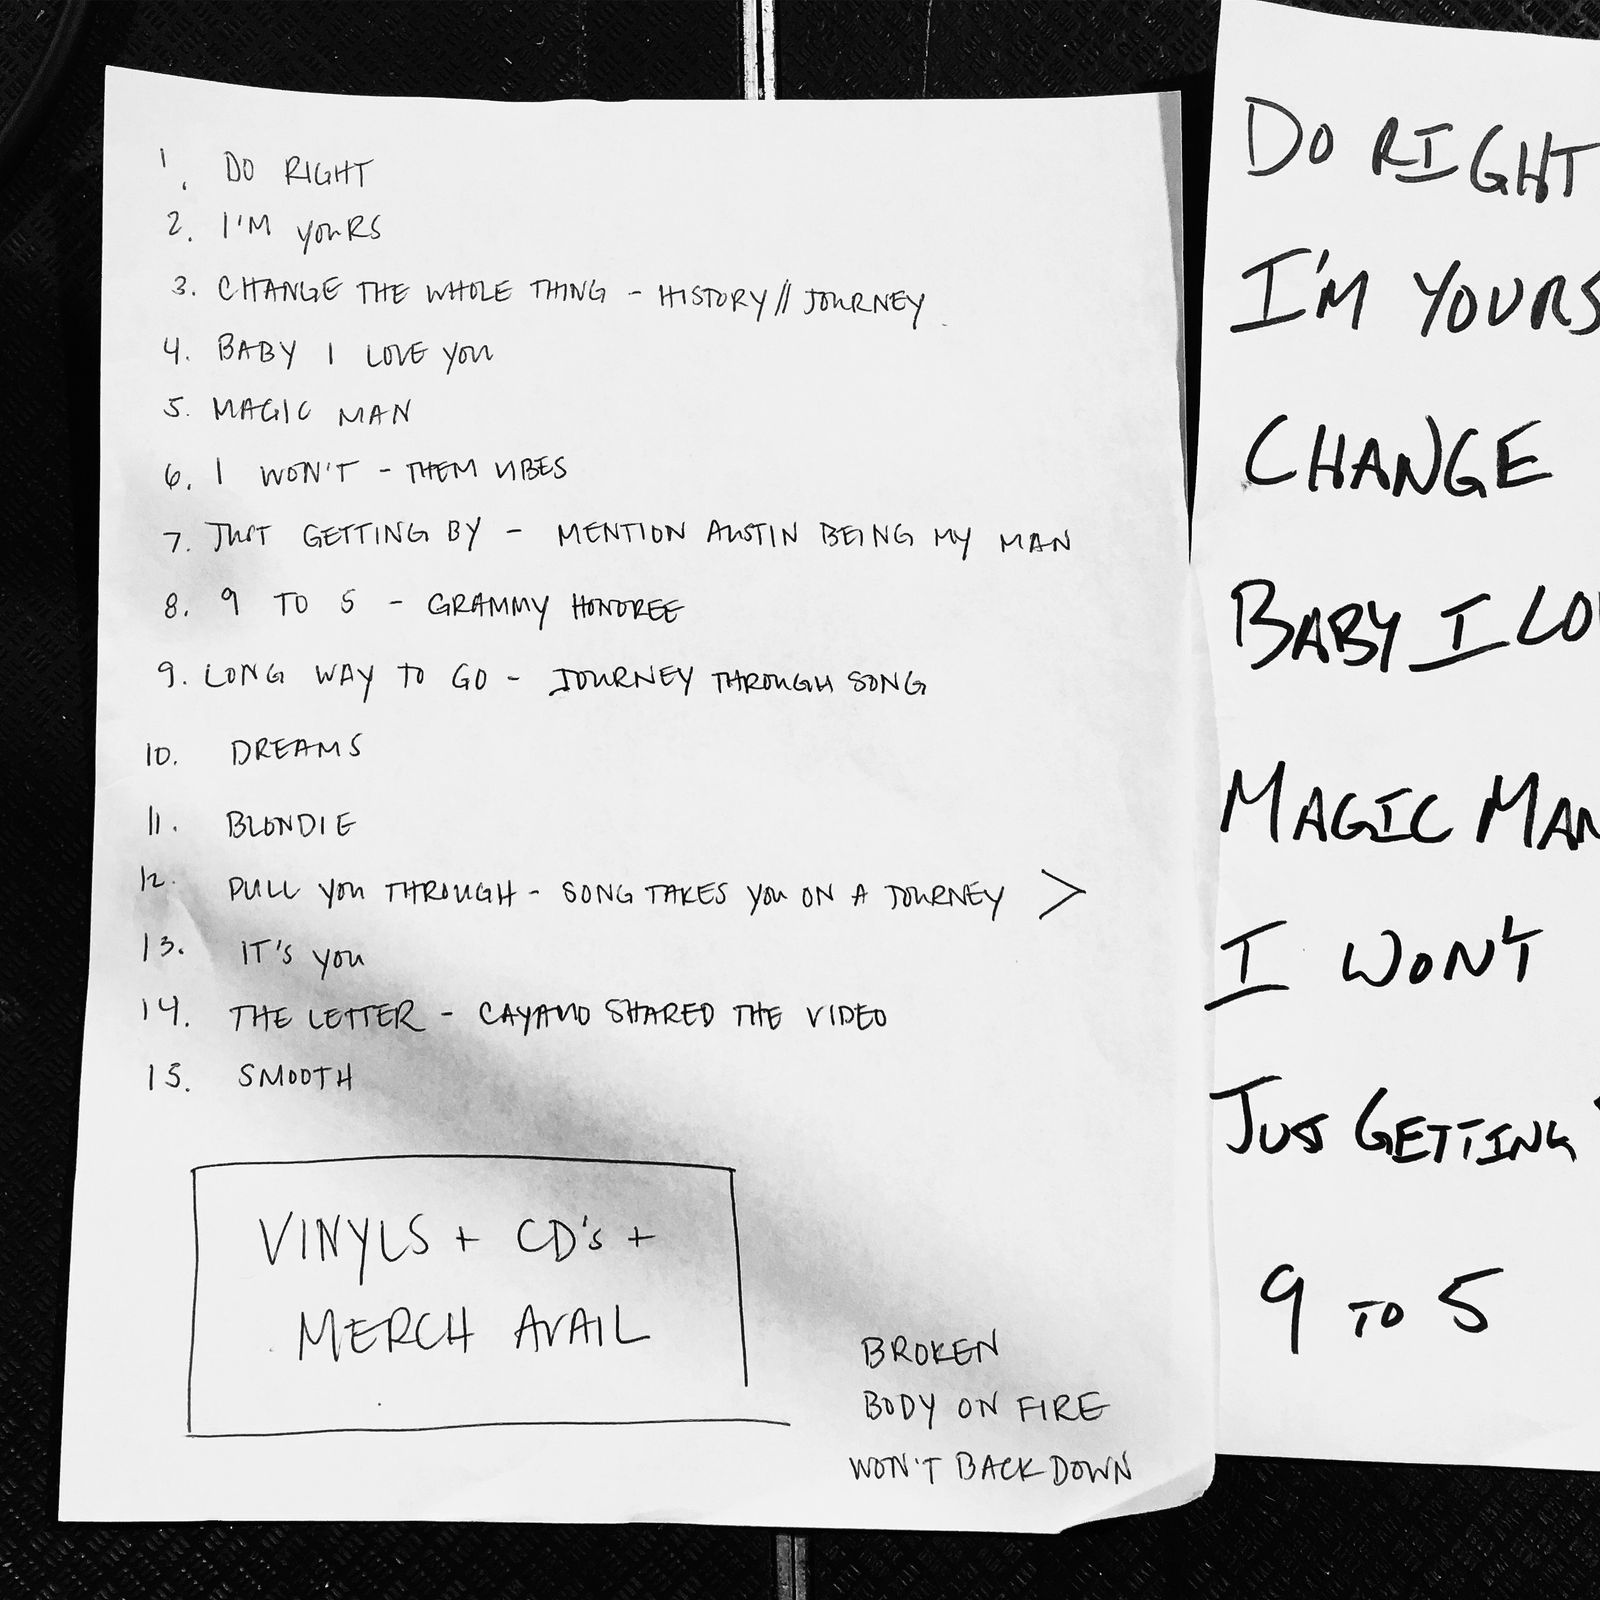 1. DO RIGHT
2. I'M YOURS
3. CHANGE THE WHOLE THING - HISTORY // JOURNEY
4. BABY I LOVE YOU
5. MAGIC MAN
6. I WON'T - THEM VIBES
7. JUST GETTING BY - MENTION AUSTIN BEING MY MAN
8. 9 TO 5 - GRAMMY HONOREE
9. LONG WAY TO GO - JOURNEY THROUGH SONG
10. DREAMS
11. BLONDIE
12. PULL YOU THROUGH - SONG TAKES YOU ON A JOURNEY >
13. IT'S YOU
14. THE LETTER - SHARED THE VIDEO
15. SMOOTH
VINYLS + CD's +
MERCH AVAIL
BROKEN
BODY ON FIRE
WON'T BACK DOWN
DO RIGHT
I'M YOURS
CHANGE
BABY I LO
MAGIC MAN
I WON'T
JUS GETTING
9 TO 5